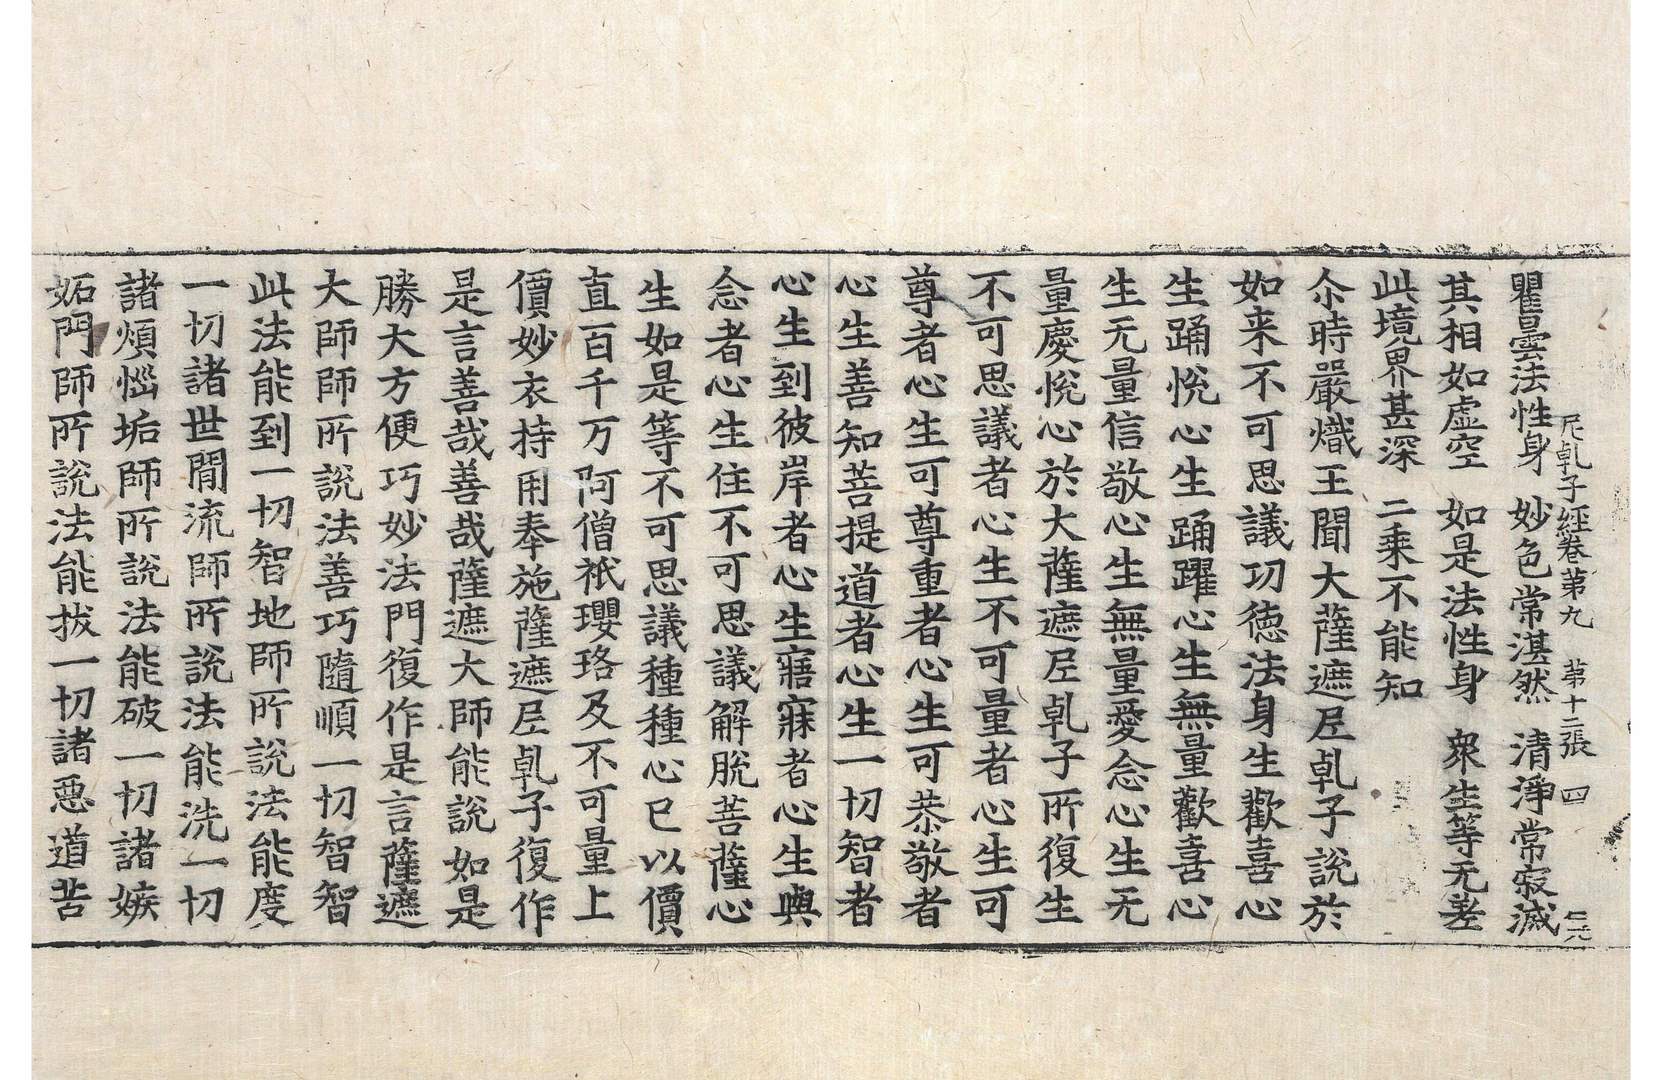 尼乹子經卷第九　第十二張　四
瞿曇法性身　妙色常湛然　清淨常寂滅
其相如虛空　如是法性身　衆生等无差
此境界甚深　二乗不能知
尒時嚴熾王聞大薩遮𡰱乹子說於
如来不可思議功徳法身生歡喜心
生踊悅心生踊躍心生無量歡喜心
生无量信敬心生無量愛念心生无
量慶悅心於大薩遮𡰱乹子所復生
不可思議者心生不可量者心生可
尊者心生可尊重者心生可恭敬者
心生善知菩提道者心生一切智者
心生到彼岸者心生寤寐者心生與
念者心生住不可思議解脫菩薩心
生如是等不可思議種種心已以價
直百千万阿僧祇瓔珞及不可量上
價妙衣持用奉施薩遮𡰱乹子復作
是言善哉善哉薩遮大師能說如是
勝大方便巧妙法門復作是言薩遮
大師師所說法善巧隨順一切智智
此法能到一切智地師所說法能度
一切諸世閒流師所說法能洗一切
諸煩惱垢師所說法能破一切諸嫉
妬門師所說法能拔一切諸惡道苦